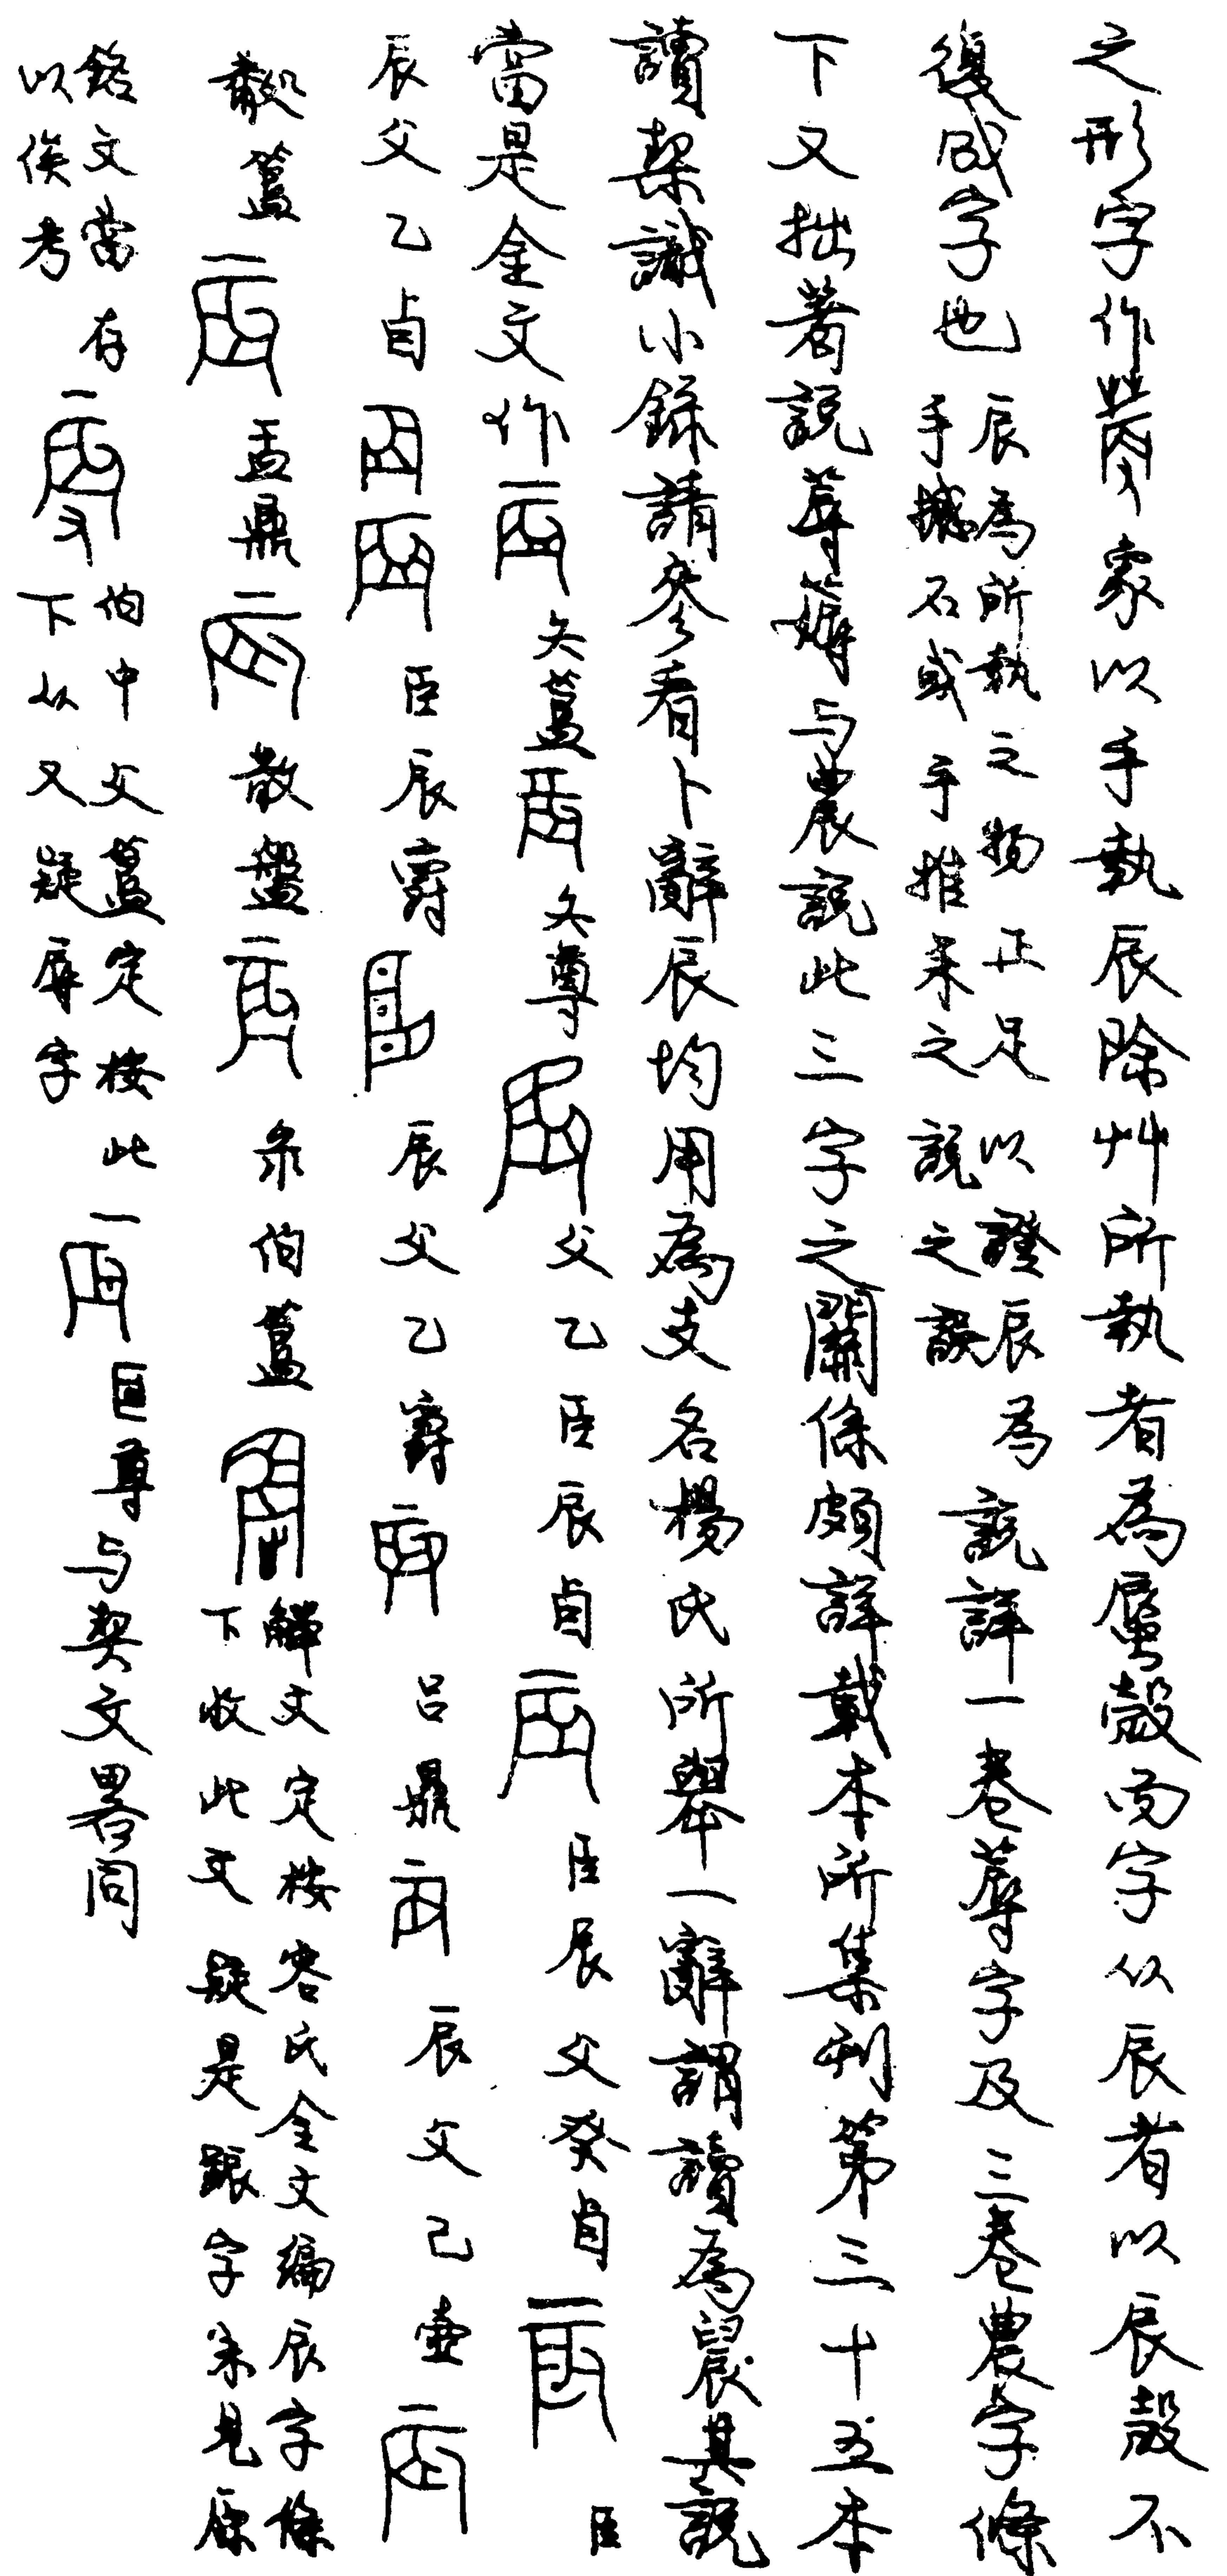 之形字作象以手執辰除艸所執者為蜃殼而字从辰者以辰殼不
復成字也辰為所執之物正足以證辰為
手據石或手推耒之說之誤說詳一卷蓐字及三卷農字條
下又拙著說蓐薅与農說此三字之關係頗詳載本所集刊第三十五本
讀栔識小錄請參看卜辭辰均用為支名楊氏所舉一辭謂讀為晨其說
當是金文作矢簋矢尊父乙臣辰卣臣辰父癸卣臣
辰父乙卣臣辰爵辰父乙爵呂鼎辰父己壺
簋盂鼎散盤彔伯簋觶文定按容氏金文編辰字條
下收此文疑是字未見原
銘文當存
以俟考伯中父簋定按此
下从又疑辱字巨尊与契文畧同